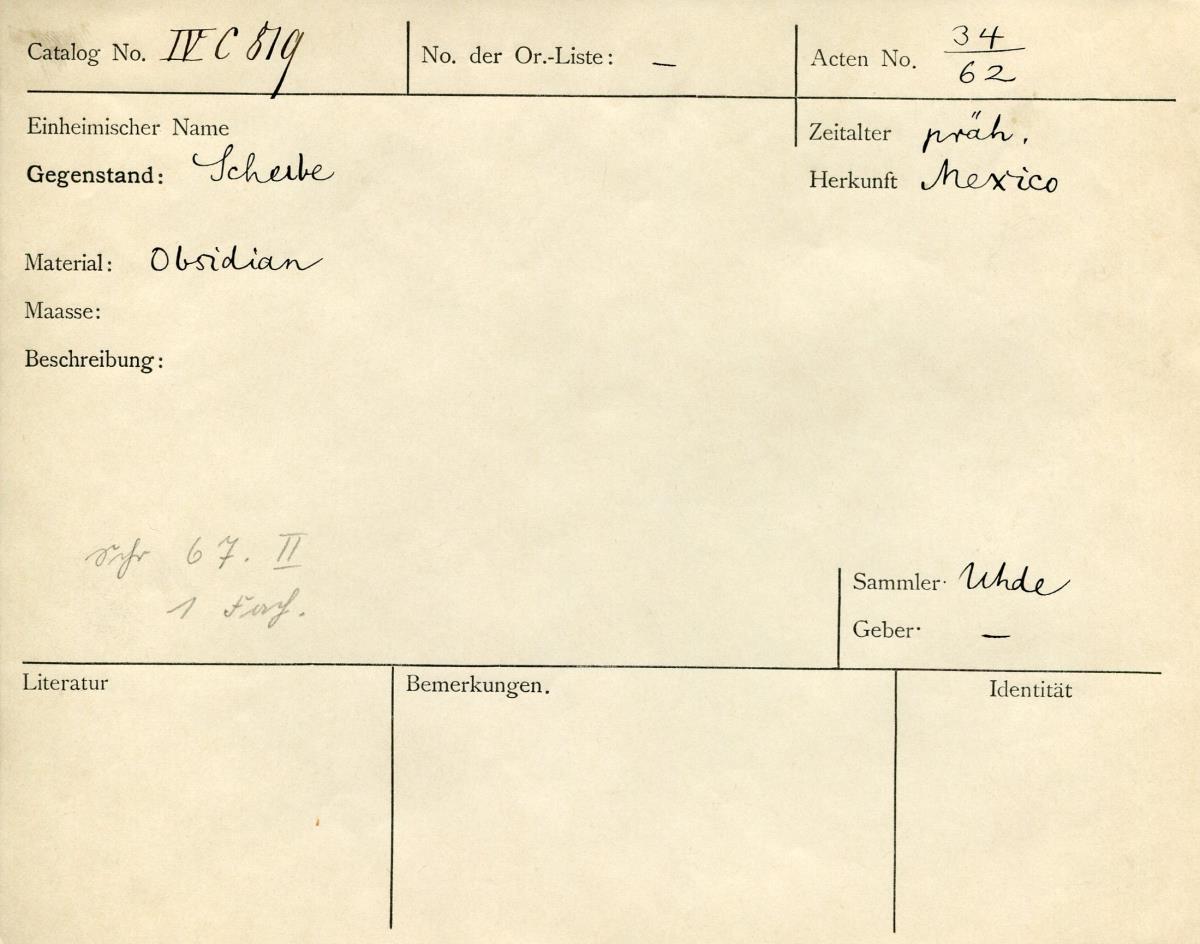 Catalog No. IV C 519
No. der Or.-Liste: —
Acten No. 34/62
Einheimischer Name
Zeitalter präh.
Gegenstand: Scheibe
Herkunft Mexico
Material: Obsidian
Maasse:
Beschreibung:
Schr 67. II
1 Fach.
Sammler. Uhde
Geber. —
Literatur
Bemerkungen.
Identität